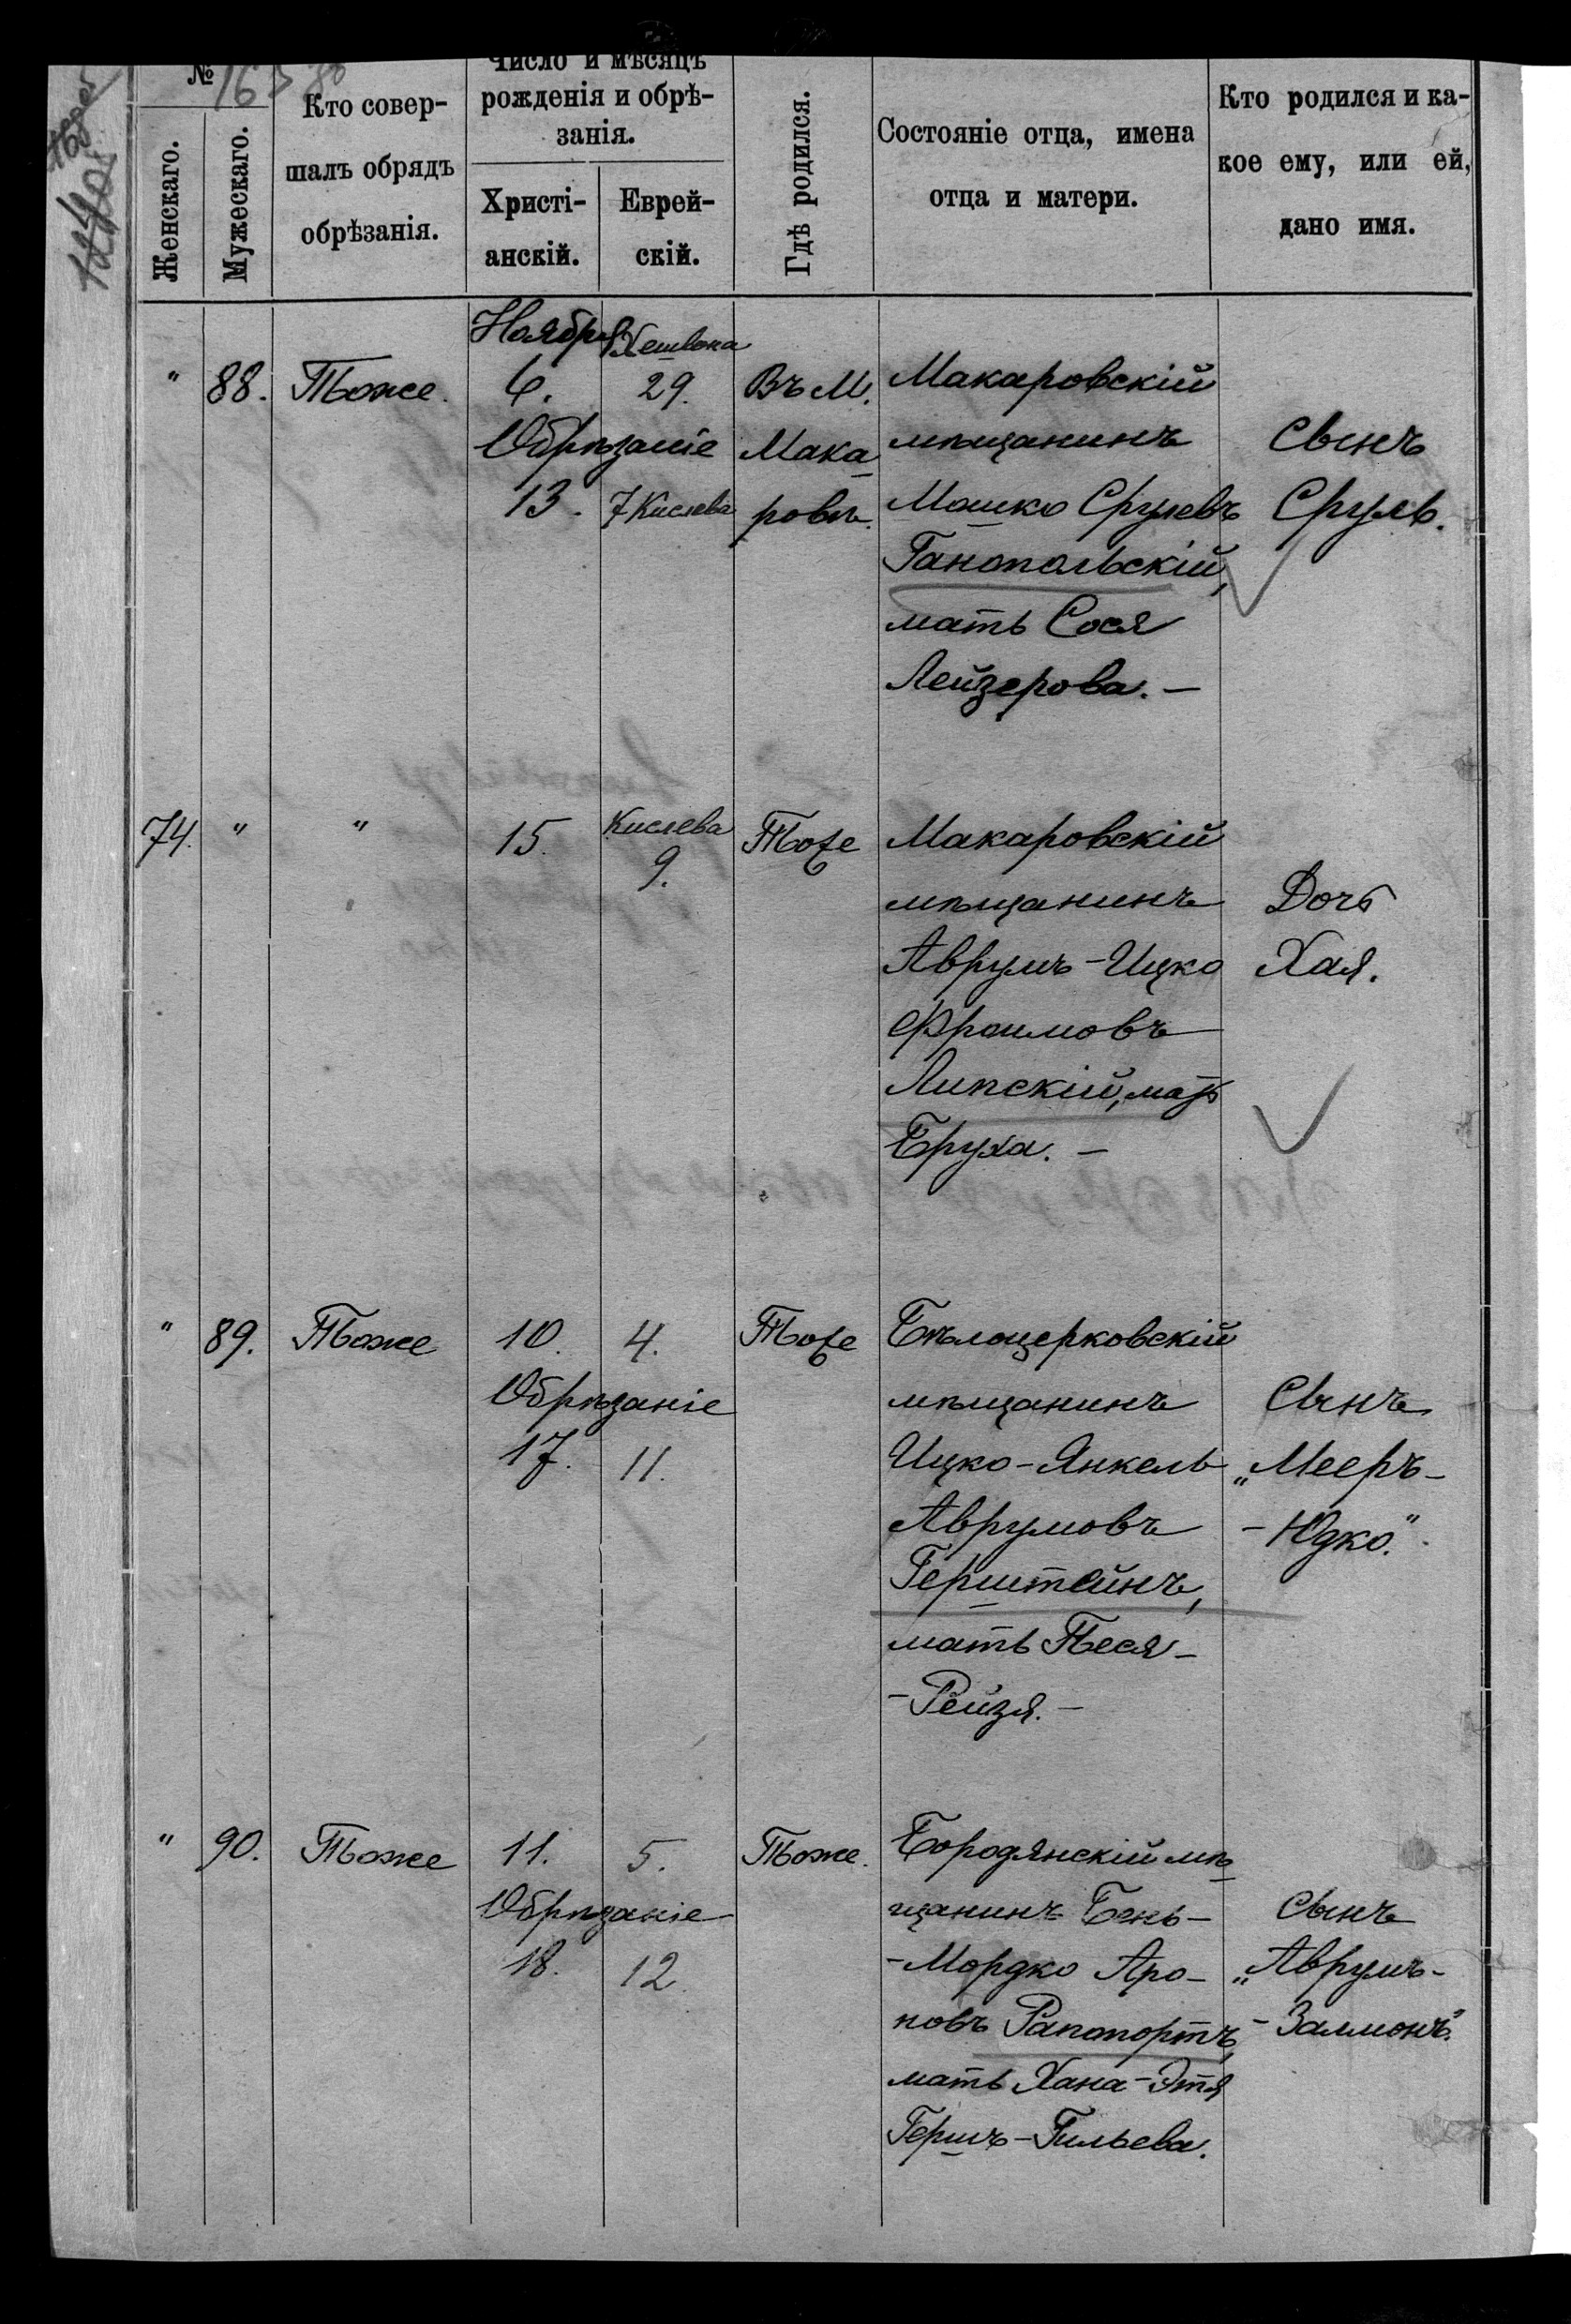 №
Женскаго.
Мужескаго.
Кто совер-
шалъ обрядъ
обрѣзанія.
Число и мѣсяцъ
рожденія и обрѣ-
занія.
Христі-
анскій.
Еврей-
скій.
Гдѣ родился.
Состояніе отца, имена
отца и матери.
Кто родился и ка-
кое ему, или ей,
дано имя.
Ноября Хешвона
" 88. Тоже. 6. 29. Въ М. Макаровскій
Обрѣзаніе Мака мѣщанинъ Сынъ
13. 7 Кислева ровѣ. Мошко Срулевъ Сруль.
Ганопольскій,
мать Сося
Лейзерова. —
74. " " 15. Кислева Тоже Макаровскій
9.
мѣщанинъ Дочь
Аврумъ-Ицко Хая.
Фроимовъ
Липскій, мать
Бруха. —
" 89. Тоже 10. 4. Тоже Бѣлоцерковскій
Обрѣзаніе мѣщанинъ Сынъ
17. 11. Ицко-Янкель „Мееръ-
Аврумовъ -Юдко."
Герштейнъ,
мать Песя-
-Рейзя. —
" 90. Тоже 11. 5. Тоже. Бородянскій мѣ
Обрѣзаніе щанинъ Бень- Сынъ
18. 12. -Мордко Аро- „Аврумъ-
новъ Рапопортъ, -Залмонъ."
мать Хана-Этя
Гершъ-Гильева.